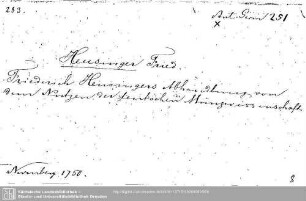 283.
Ant. Graec 251
x
Heusinger Fried.
Friederich Heusingers Abhandlung von
dem Nutzen der teutschen Münzwissenschaft.
Nürnberg 1750.
8
Sächsische Landesbibliothek -
Staats- und Universitätsbibliothek Dresden